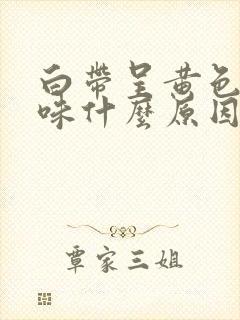 白帶呈黃色
味什麼原因
覃家三姐